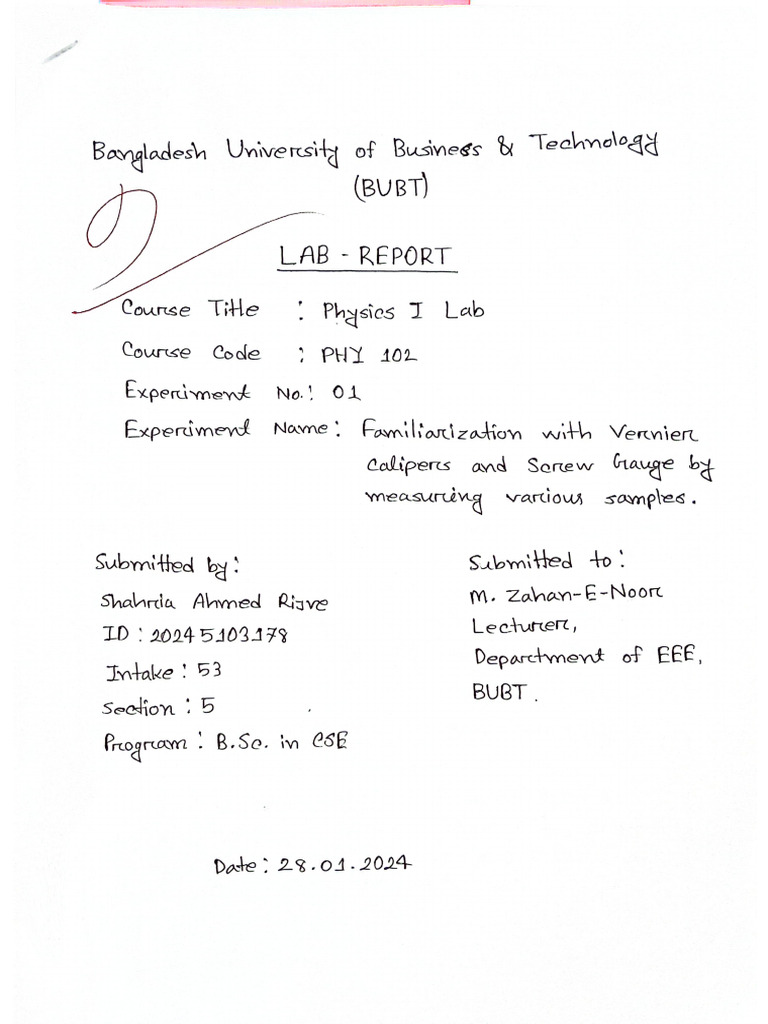 Bangladesh University of Business & Technology
(BUBT)
LAB - REPORT
Course Title : Physics I Lab
Course Code : PHY 102
Experiment No.: 01
Experiment Name: Familiarization with Vernier
Calipers and Screw Gauge by
measuring various samples.
Submitted by:
Shahria Ahmed Rijve
ID : 20245103178
Intake : 53
Section : 5
Program : B.Sc. in CSE
Submitted to:
M. Zahan-E-Noor
Lecturer,
Department of EEE,
BUBT.
Date : 28.01.2024